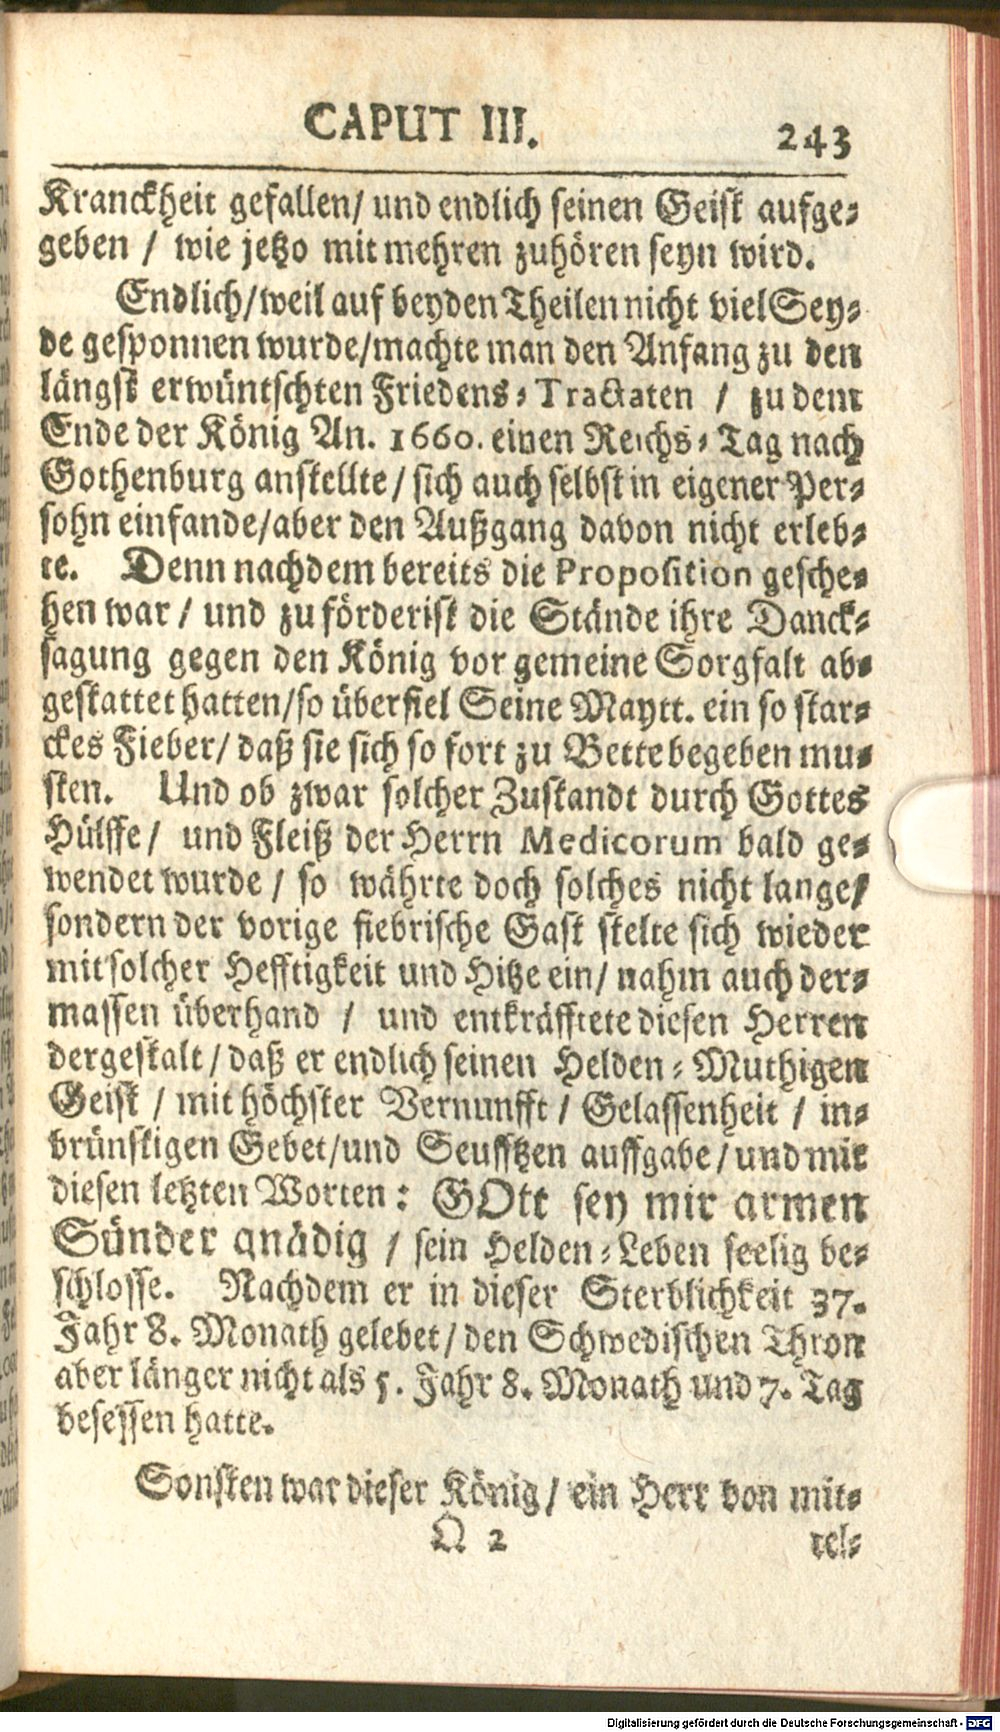 CAPUT III. 243
Kranckheit gefallen/ und endlich seinen Geist aufge-
geben / wie jetzo mit mehren zuhören seyn wird.
Endlich/ weil auf beyden Theilen nicht viel Sey-
de gesponnen wurde/machte man den Anfang zu den
längst erwüntschten Friedens-Tractaten / zu dem
Ende der König An. 1660. einen Reichs-Tag nach
Gothenburg anstellte/ sich auch selbst in eigener Per-
sohn einfande/aber den Außgang davon nicht erleb-
te. Denn nachdem bereits die Proposition gesche-
hen war / und zu förderist die Stände ihre Danck-
sagung gegen den König vor gemeine Sorgfalt ab-
gestattet hatten/so überfiel Seine Maytt. ein so star-
ckes Fieber/ daß sie sich so fort zu Bette begeben mu-
sten. Und ob zwar solcher Zustandt durch Gottes
Hülffe/ und Fleiß der Herrn Medicorum bald ge-
wendet wurde / so währte doch solches nicht lange/
sondern der vorige fiebrische Gast stelte sich wieder
mit solcher Hefftigkeit und Hitze ein/ nahm auch der-
massen überhand / und entkräfftete diesen Herren
dergestalt / daß er endlich seinen Helden-Muthigen
Geist / mit höchster Vernunfft / Gelassenheit / in-
brünstigen Gebet/und Seufftzen auffgabe/ und mit
diesen letzten Worten: GOtt sey mir armen
Sünder gnädig / sein Helden-Leben seelig be-
schlosse. Nachdem er in dieser Sterblichkeit 37.
Jahr 8. Monath gelebet/ den Schwedischen Thron
aber länger nicht als 5. Jahr 8. Monath und 7. Tag
besessen hatte.
Sonsten war dieser König/ ein Herr von mit-
Q 2 tel-
Digitalisierung gefördert durch die Deutsche Forschungsgemeinschaft - DFG